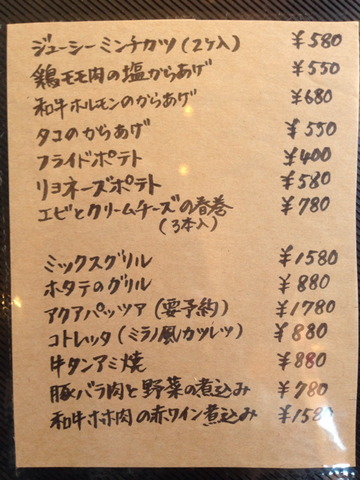 ジューシーミンチカツ(2ケ入) ¥580
鶏モモ肉の塩からあげ ¥550
和牛ホルモンのからあげ ¥680
タコのからあげ ¥550
フライドポテト ¥400
リヨネーズポテト ¥580
エビとクリームチーズの春巻 ¥780
(3本入)
ミックスグリル ¥1580
ホタテのグリル ¥880
アクアパッツァ(要予約) ¥1780
コトレッタ(ミラノ風カツレツ) ¥880
牛タンアミ焼 ¥880
豚バラ肉と野菜の煮込み ¥780
和牛ホホ肉の赤ワイン煮込み ¥1580